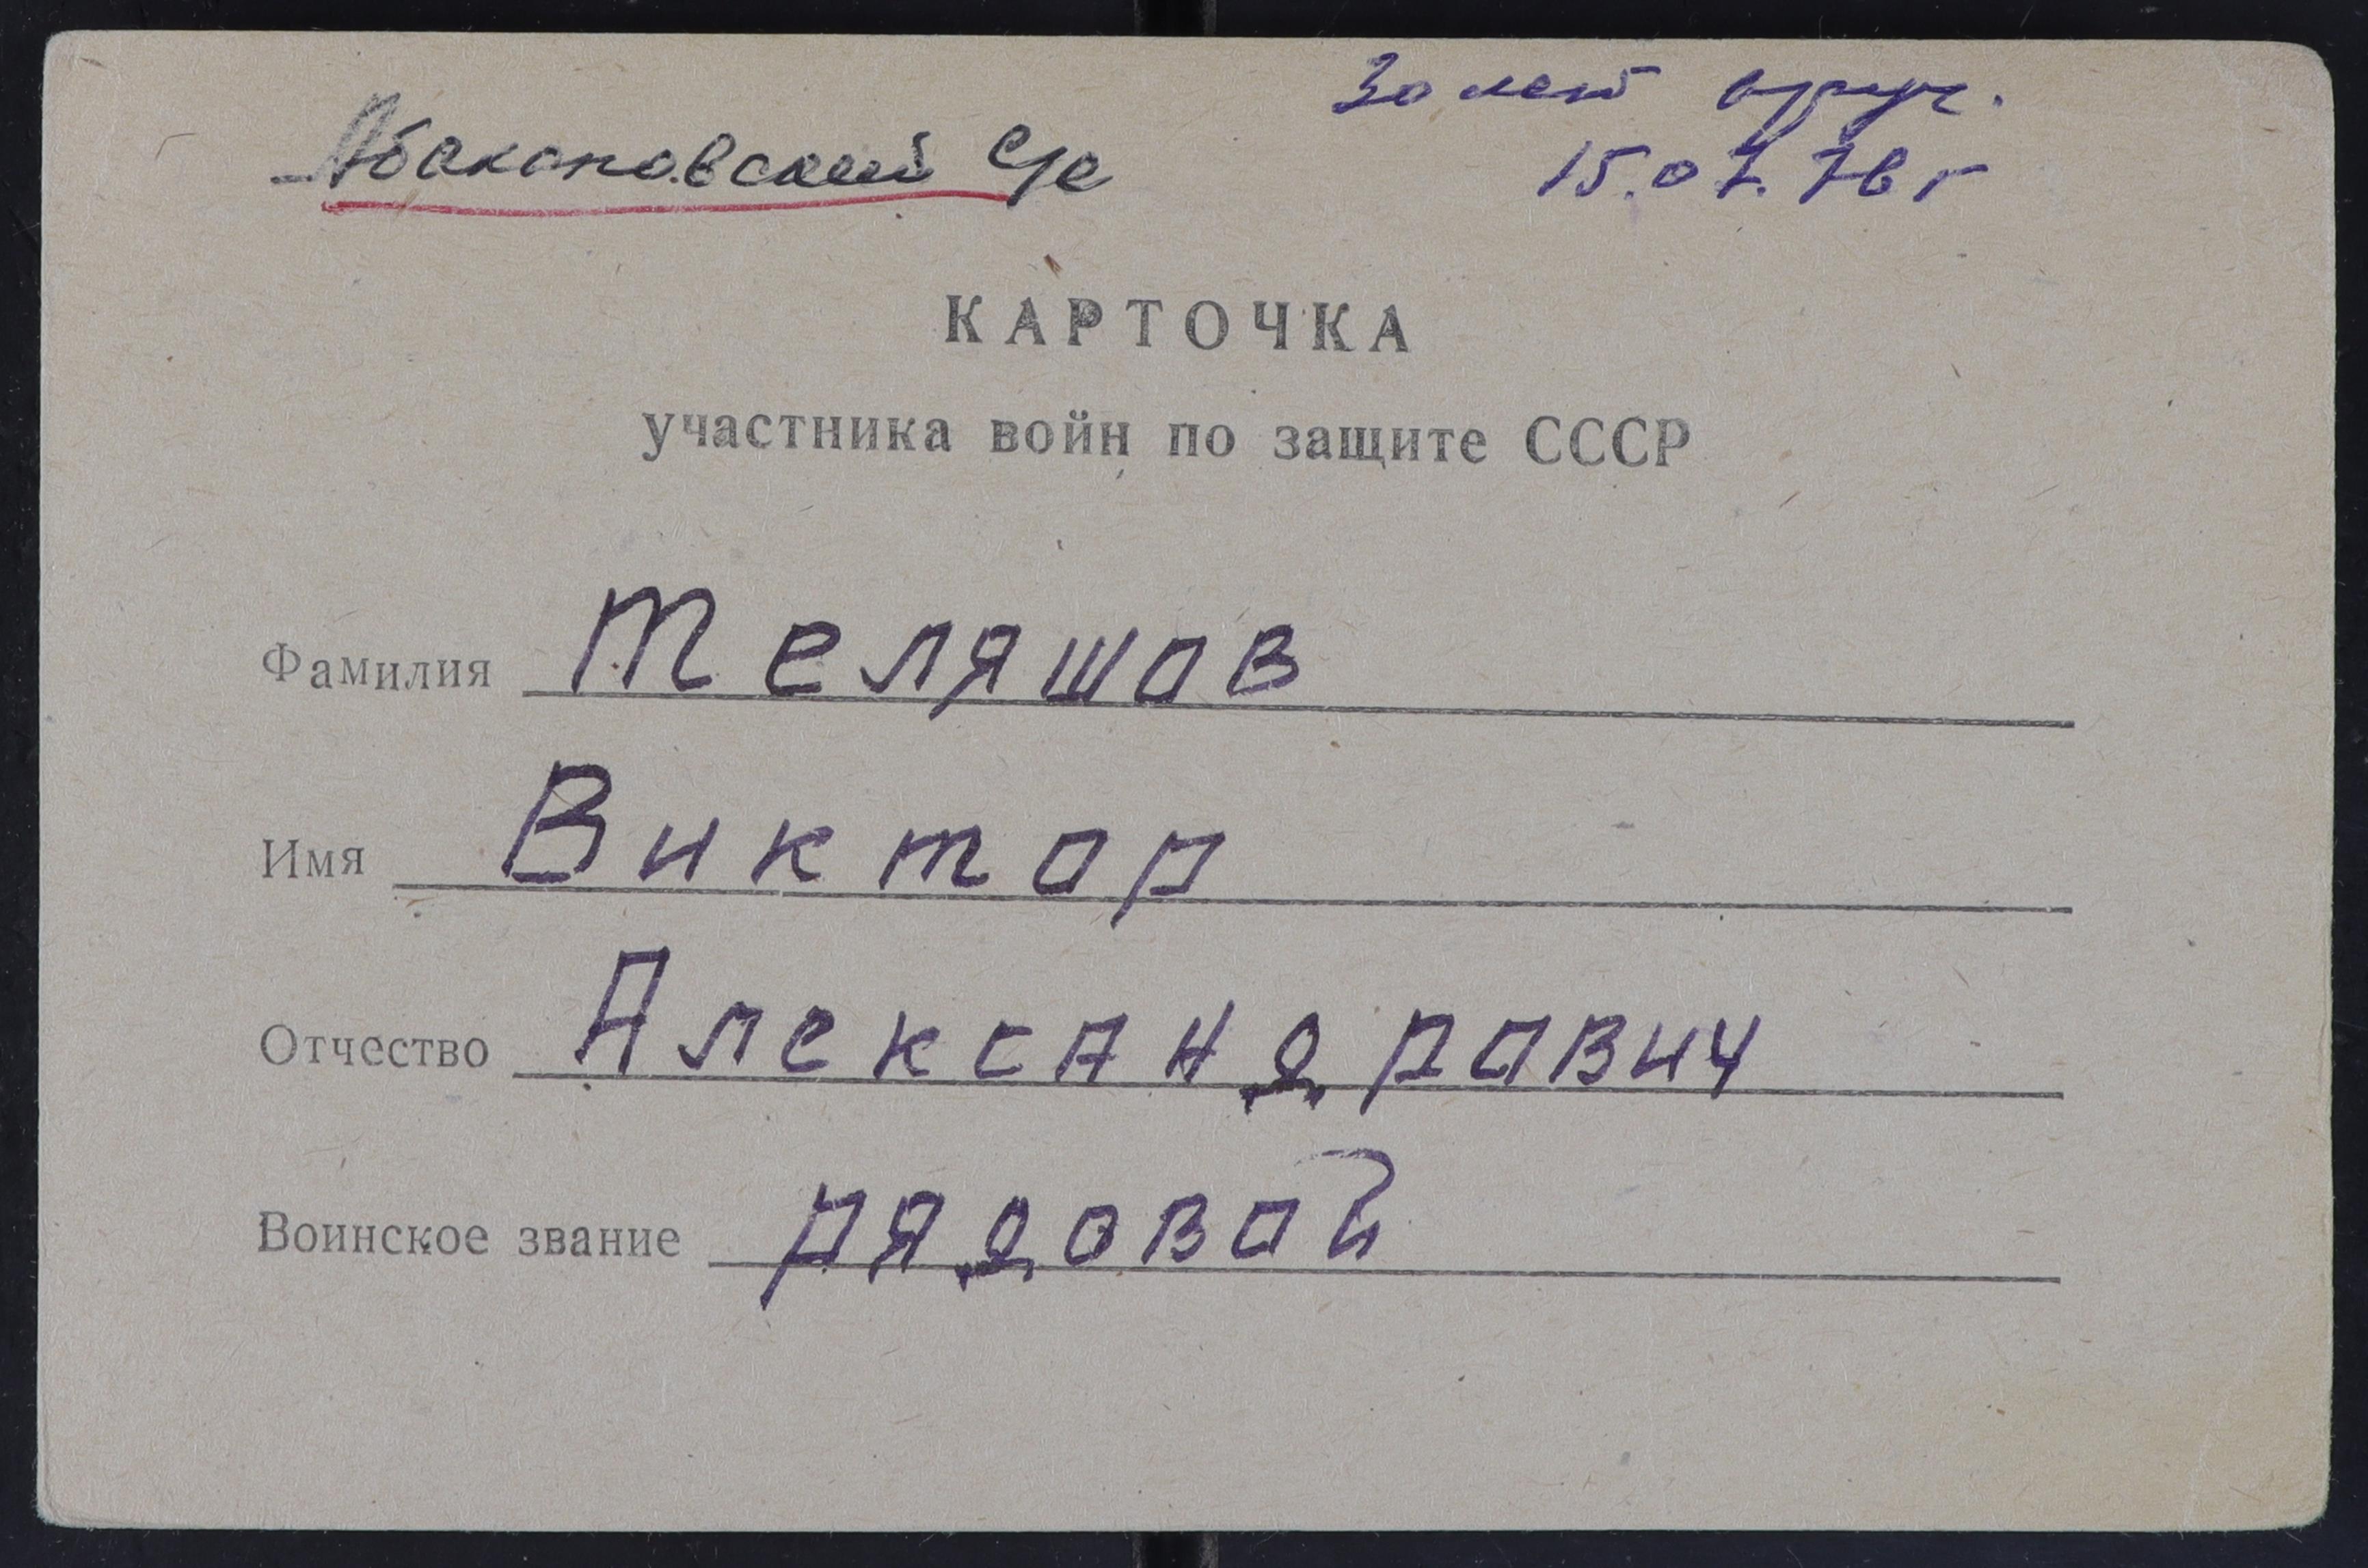 Абакановский с/с
30 лет вруч.
15.07.76 г
КАРТОЧКА
участника войн по защите СССР
Фамилия Теляшов
Имя Виктор
Отчество Александрович
Воинское звание рядовой